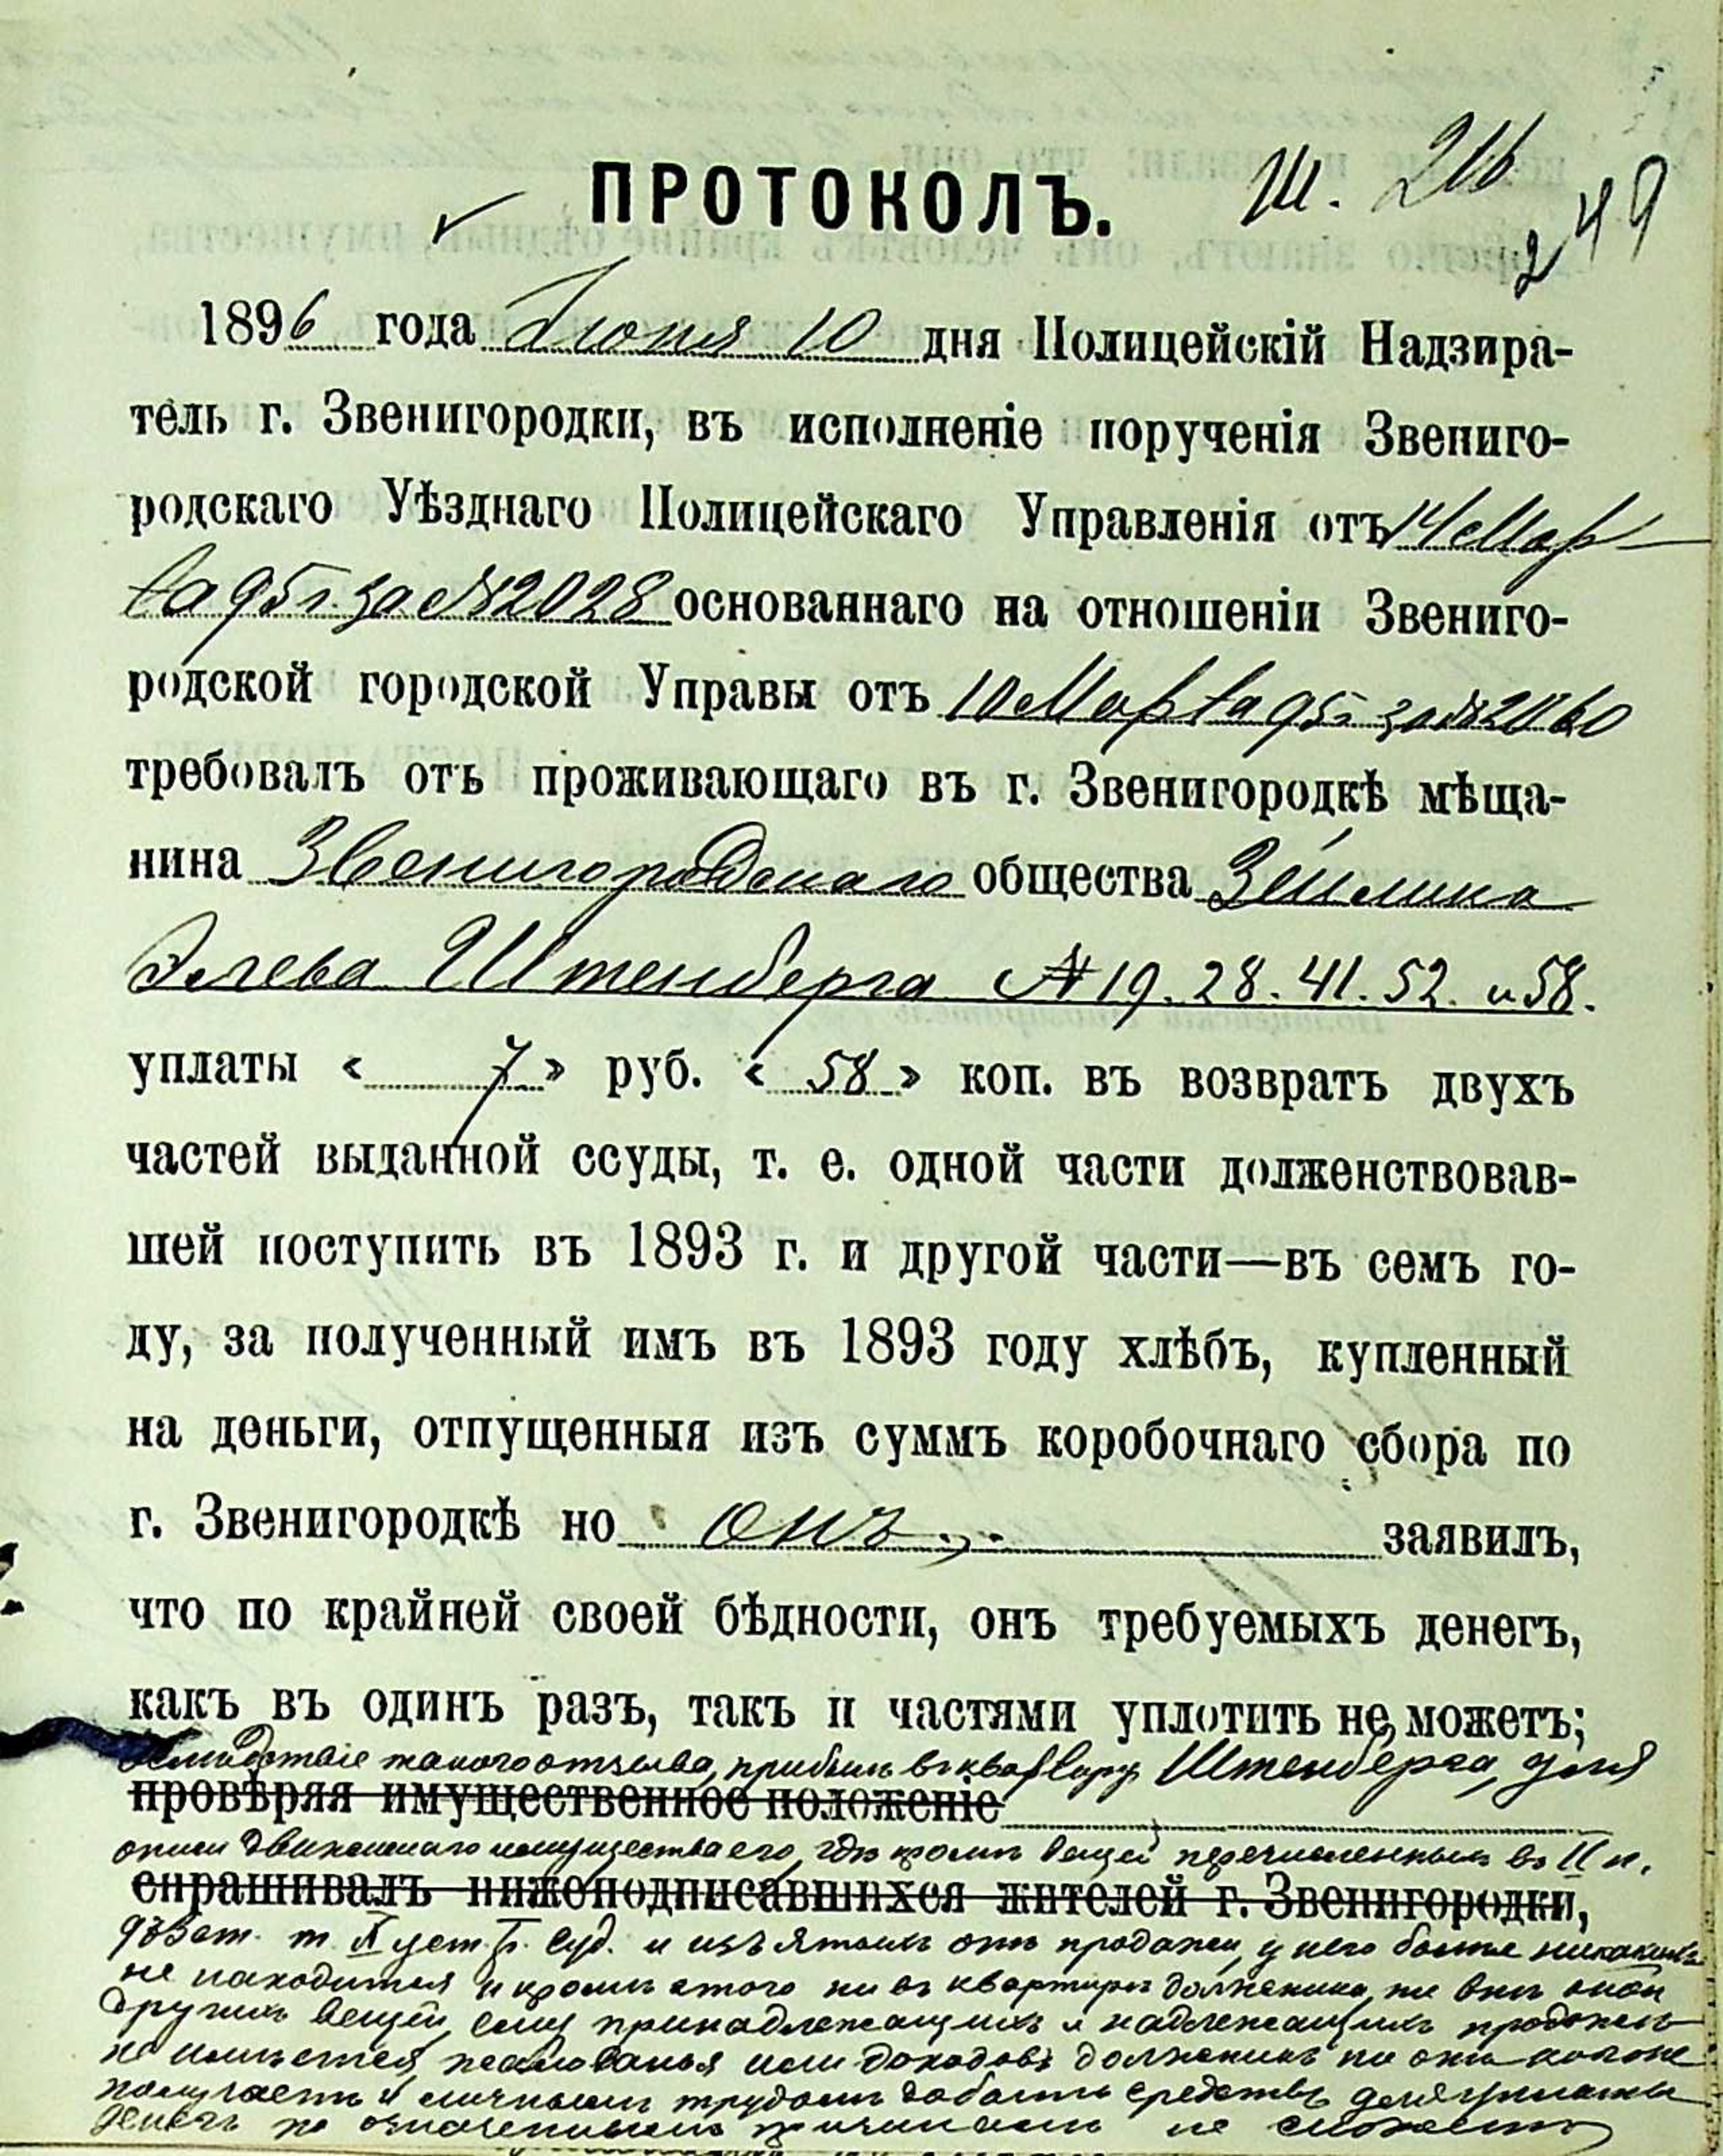 ПРОТОКОЛЪ.
Ш. 216
249
1896 года Іюня 10 дня Полицейскій Надзира-
тель г. Звенигородки, въ исполненіе порученія Звениго-
родскаго Уѣзднаго Полицейскаго Управленія отъ 14 Мар-
та 95 г. за № 2028 основаннаго на отношеніи Звениго-
родской городской Управы отъ 10 Марта 95 г за №
требовалъ отъ проживающаго въ г. Звенигородкѣ мѣща-
нина Звенигородскаго общества Зейлика
Элева Штенберга № 19. 28. 41. 52. и 58.
уплаты « 7 » руб. « 58 » коп. въ возвратъ двухъ
частей выданной ссуды, т. е. одной части долженствовав-
шей поступить въ 1893 г. и другой части—въ семъ го-
ду, за полученный имъ въ 1893 году хлѣбъ, купленный
на деньги, отпущенныя изъ суммъ коробочнаго сбора по
г. Звенигородкѣ но онъ заявилъ,
что по крайней своей бѣдности, онъ требуемыхъ денегъ,
какъ въ одинъ разъ, такъ и частями уплотить не можетъ;
вслѣдствіе такого отзыва, прибылъ въ квартиру Штенберга, для
провѣряя имущественное положеніе
описи движимаго имущества его, гдѣ кромѣ вещей перечисленныхъ въ II п.
спрашивалъ нижеподписавшихся жителей г. Звенигородки,
973 ст. т X уст. Гр. Суд. и изъятыхъ отъ продажи, у него болѣе никакихъ
не находится и кромѣ этого ни въ квартирѣ должника, ни внѣ оной
другихъ вещей, ему принадлежащихъ и надлежащихъ продажѣ
не имѣется, жалованья или доходовъ должникъ ни откуда не
получаетъ и личнымъ трудомъ добыть средствъ для уплаты
денегъ по означеннымъ причинамъ не можетъ